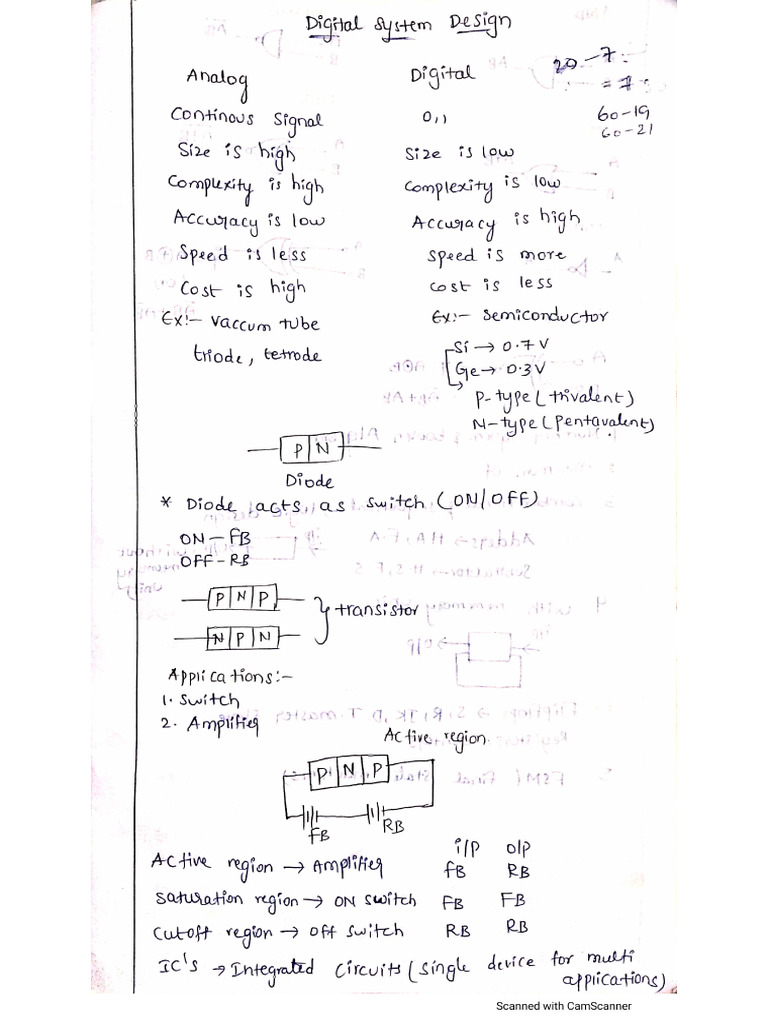 Digital System Design
Analog Digital 20-7
Continous Signal 0,1 60-19
60-21
Size is high Size is low
Complexity is high Complexity is low
Accuracy is low Accuracy is high
Speed is less Speed is more
Cost is high cost is less
Ex:- Vaccum tube Ex:- Semiconductor
triode, tetrode Si → 0.7 V
Ge → 0.3 V
P-type (trivalent)
N-type (pentavalent)
P N
Diode
* Diode acts as switch (ON/OFF)
ON - FB
OFF - RB
P N P
N P N } transistor
Applications:-
1. Switch
2. Amplifier
Active region
P N P
FB RB
i/p o/p
Active region → Amplifier FB RB
Saturation region → ON switch FB FB
Cutoff region → Off switch RB RB
IC's → Integrated Circuits (Single device for multi
applications)
Scanned with CamScanner